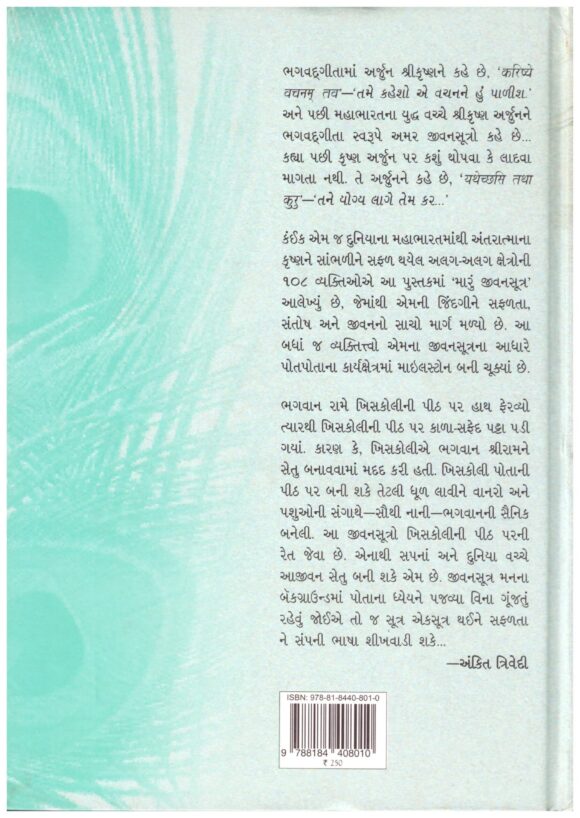 ભગવદ્ગીતામાં અર્જુન શ્રીકૃષ્ણને કહે છે, ‘करिष्ये
वचनम् तव’—‘તમે કહેશો એ વચનને હું પાળીશ.’
અને પછી મહાભારતના યુદ્ધ વચ્ચે શ્રીકૃષ્ણ અર્જુનને
ભગવદ્ગીતા સ્વરૂપે અમર જીવનસૂત્રો કહે છે...
કહ્યા પછી કૃષ્ણ અર્જુન પર કશું થોપવા કે લાદવા
માગતા નથી. તે અર્જુનને કહે છે, ‘यथेच्छसि तथा
कुरु’—‘તને યોગ્ય લાગે તેમ કર...’
કંઈક એમ જ દુનિયાના મહાભારતમાંથી અંતરાત્માના
કૃષ્ણને સાંભળીને સફળ થયેલ અલગ-અલગ ક્ષેત્રોની
૧૦૮ વ્યક્તિઓએ આ પુસ્તકમાં ‘મારું જીવનસૂત્ર’
આલેખ્યું છે, જેમાંથી એમની જિંદગીને સફળતા,
સંતોષ અને જીવનનો સાચો માર્ગ મળ્યો છે. આ
બધાં જ વ્યક્તિત્ત્વો એમના જીવનસૂત્રના આધારે
પોતપોતાના કાર્યક્ષેત્રમાં માઇલસ્ટોન બની ચૂક્યાં છે.
ભગવાન રામે ખિસકોલીની પીઠ પર હાથ ફેરવ્યો
ત્યારથી ખિસકોલીની પીઠ પર કાળા-સફેદ પટ્ટા પડી
ગયાં. કારણ કે, ખિસકોલીએ ભગવાન શ્રીરામને
સેતુ બનાવવામાં મદદ કરી હતી. ખિસકોલી પોતાની
પીઠ પર બની શકે તેટલી ધૂળ લાવીને વાનરો અને
પશુઓની સંગાથે—સૌથી નાની—ભગવાનની સૈનિક
બનેલી. આ જીવનસૂત્રો ખિસકોલીની પીઠ પરની
રેત જેવા છે. એનાથી સપનાં અને દુનિયા વચ્ચે
આજીવન સેતુ બની શકે એમ છે. જીવનસૂત્ર મનના
બૅકગ્રાઉન્ડમાં પોતાના ધ્યેયને પજવ્યા વિના ગૂંજતું
રહેવું જોઈએ તો જ સૂત્ર એકસૂત્ર થઈને સફળતા
ને સંપની ભાષા શીખવાડી શકે...
—અંકિત ત્રિવેદી
ISBN: 978-81-8440-801-0
9 788184 408010
₹ 250